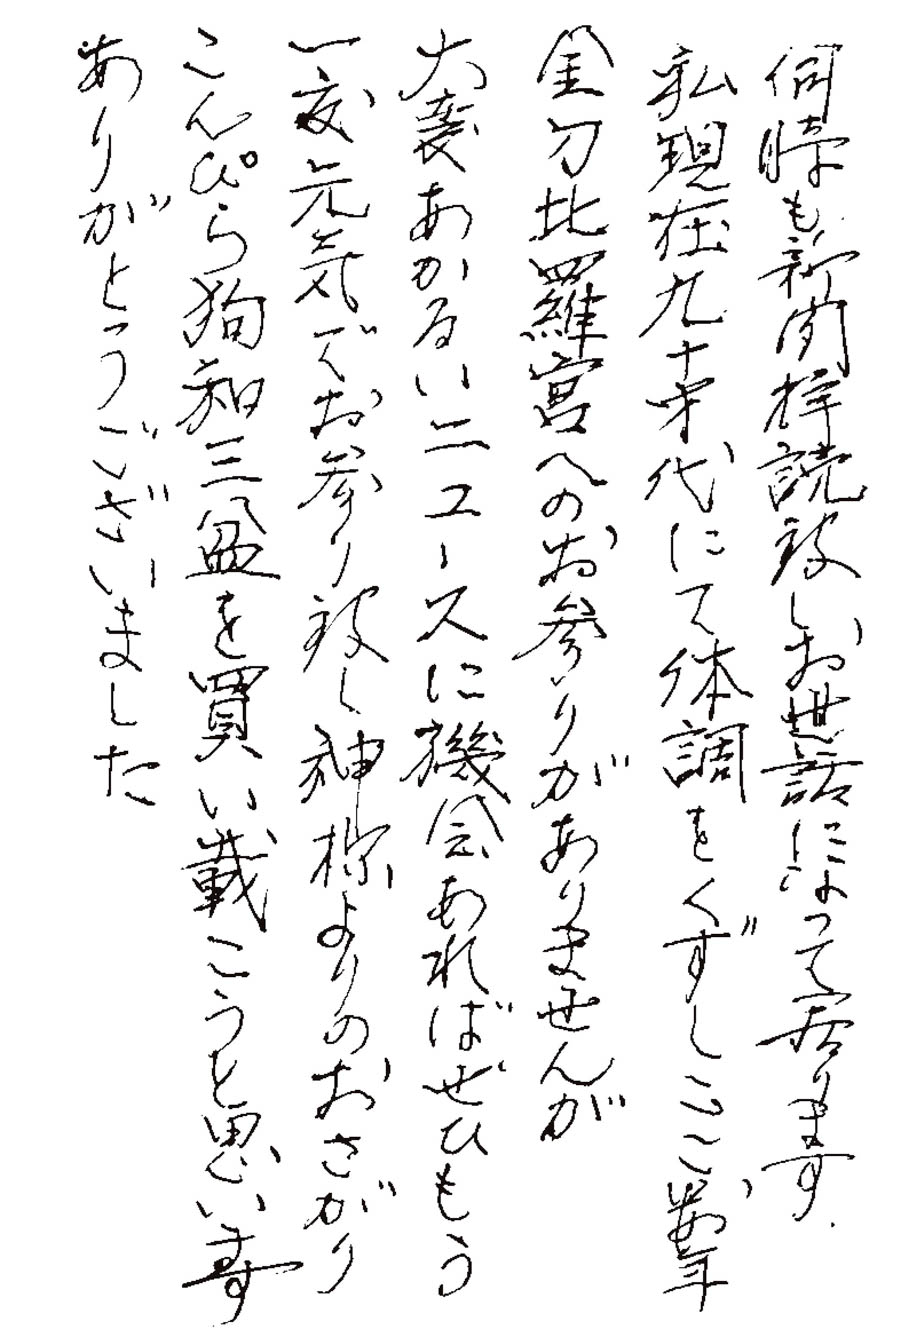 何時も新聞拝読致しお世話になって居ります
私現在九十才代にて体調をくずしここ数年
金刀比羅宮へのお参りがありませんが
大変あかるいニュースに機会あればぜひもう
一度元気でお参り致し神様よりのおさがり
こんぴら狗和三盆を買い載こうと思います
ありがとうございました